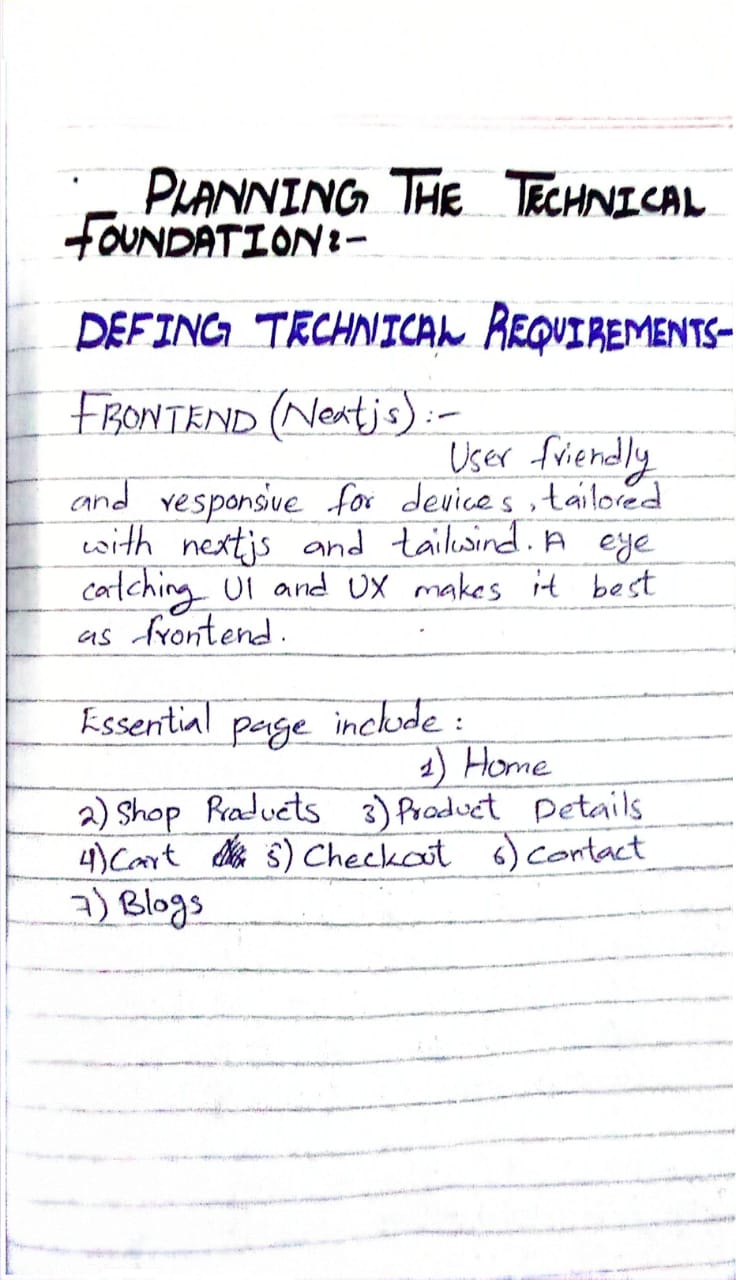 PLANNING THE TECHNICAL
FOUNDATION:-
DEFING TECHNICAL REQUIREMENTS-
FRONTEND (Nextjs) :-
User friendly
and responsive for devices, tailored
with nextjs and tailwind. A eye
catching UI and UX makes it best
as frontend.
Essential page include :
1) Home
2) Shop Products 3) Product Details
4) Cart 5) Checkout 6) Contact
7) Blogs